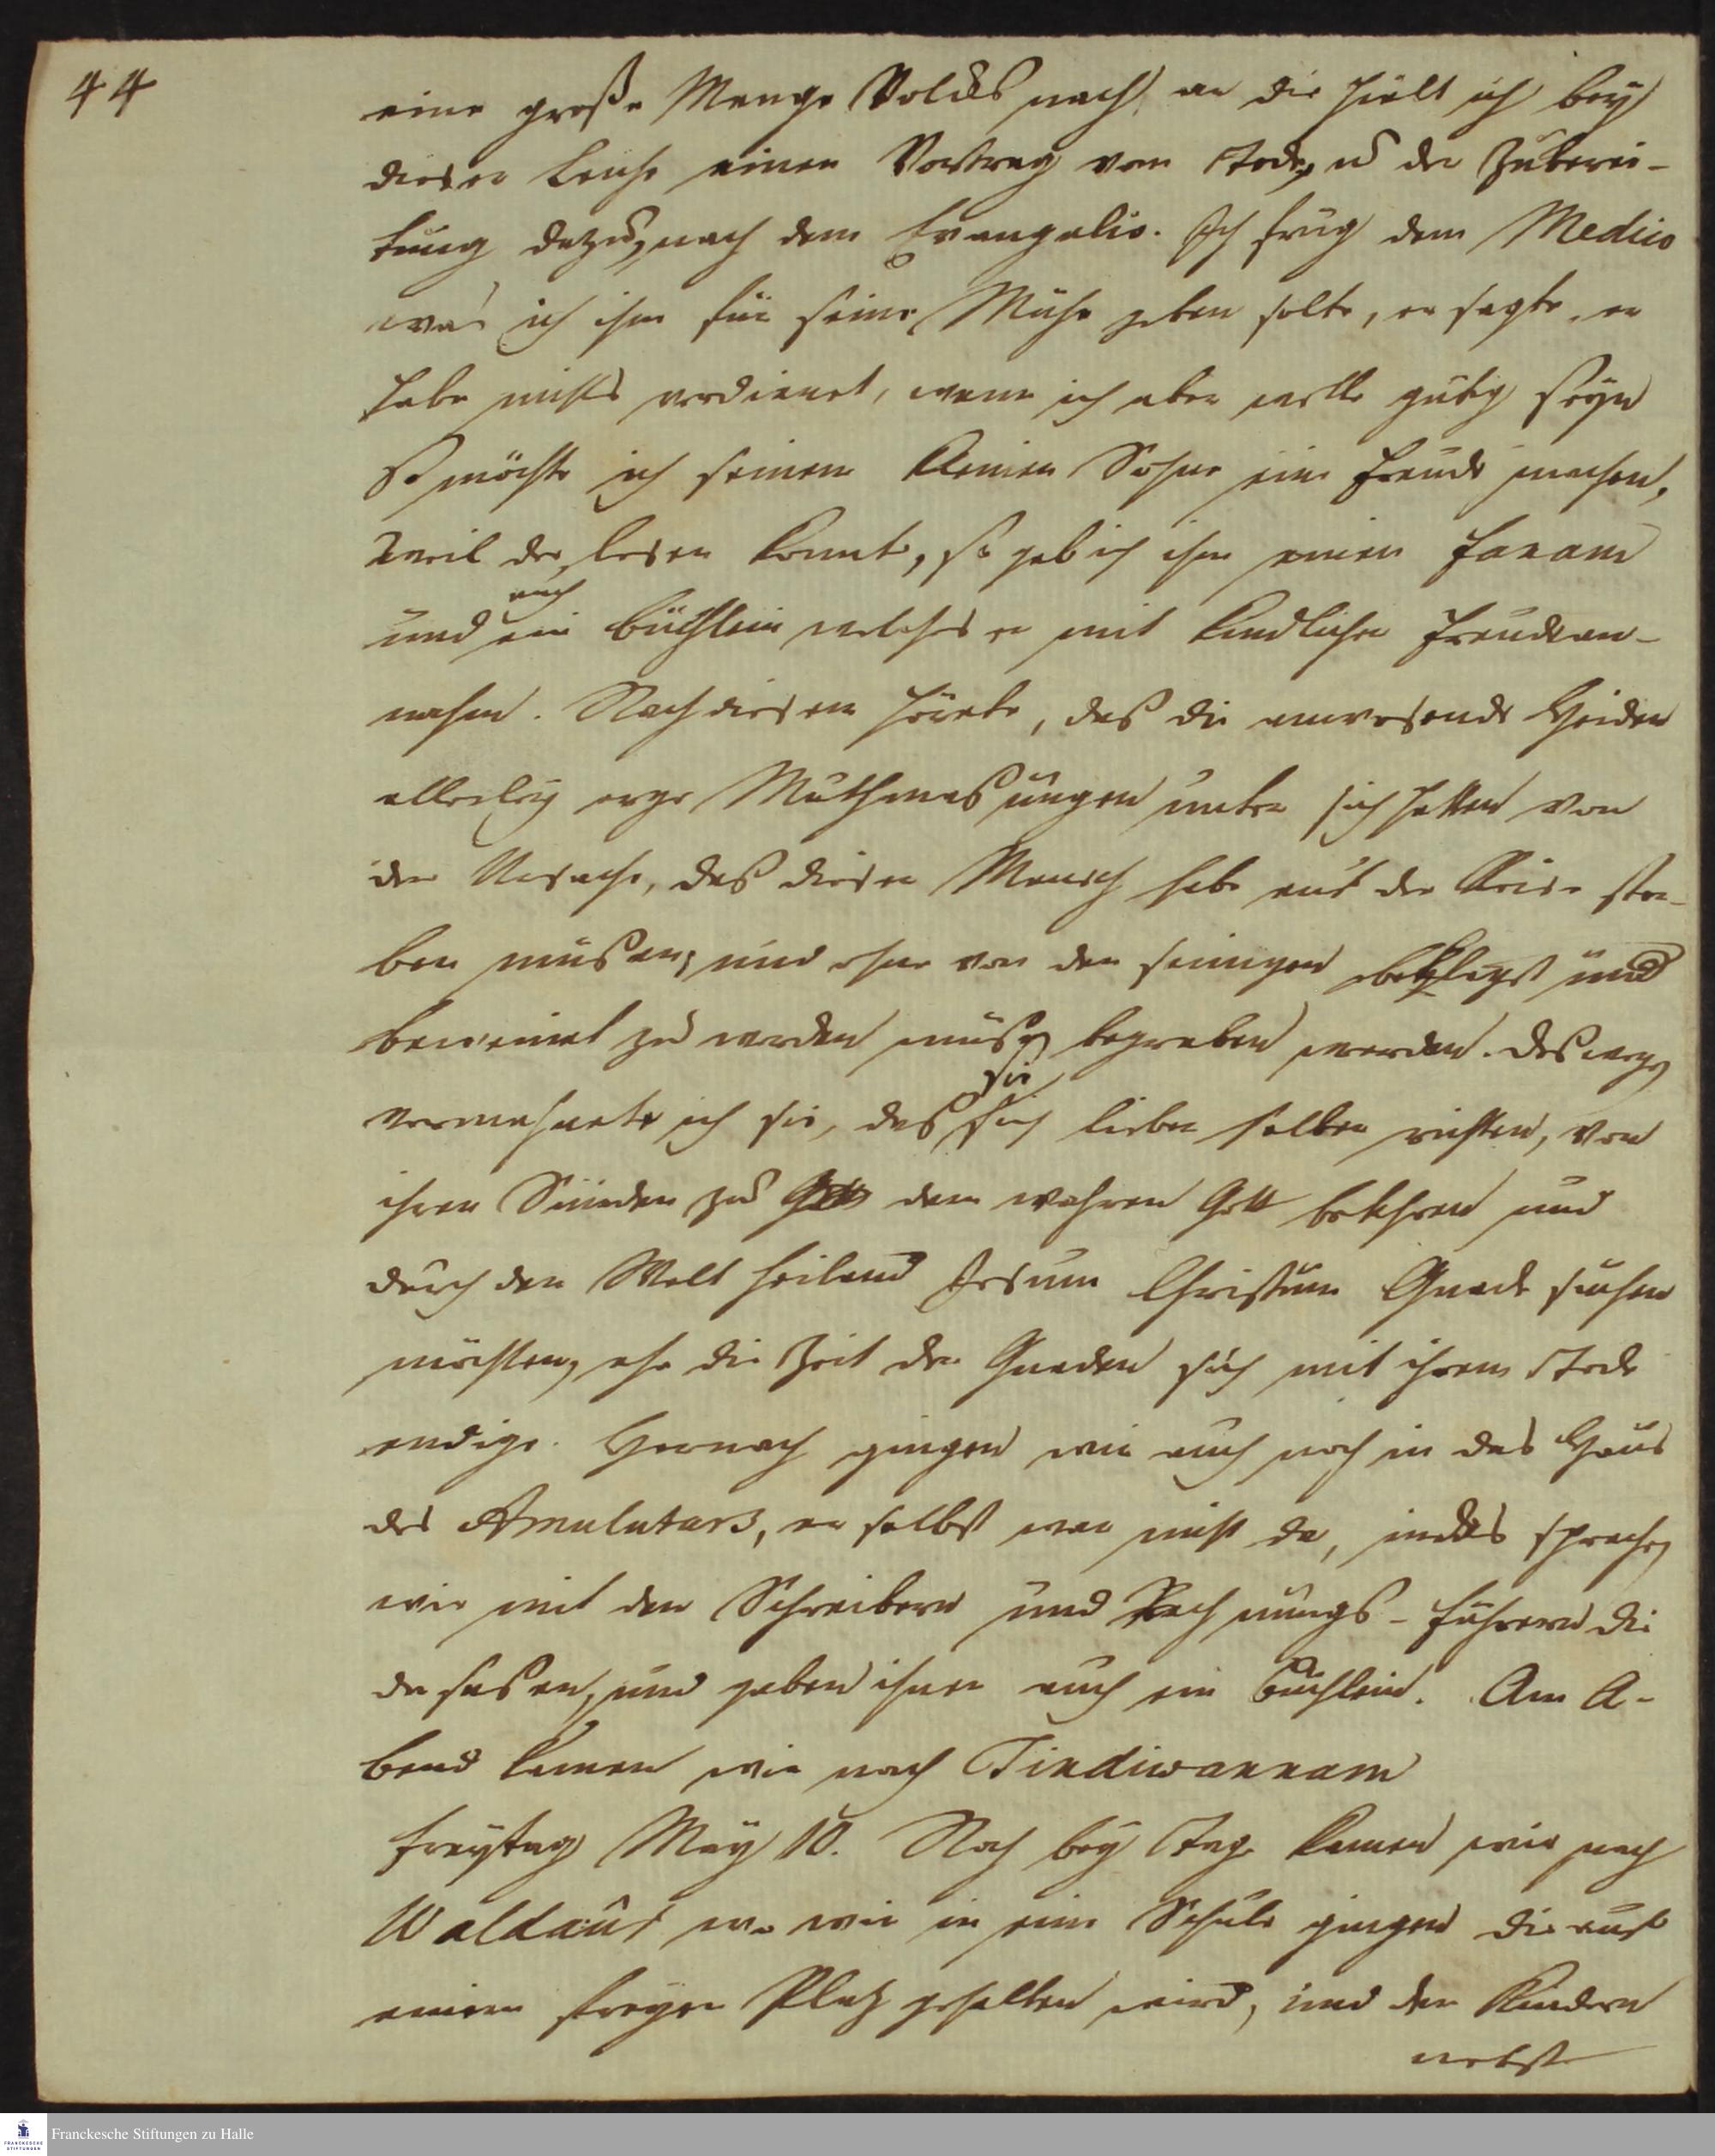 44
eine große Menge Volcks nach, an die hielt ich bey
dieser Leiche einen Vortrag vom Tode, u der Zuberei-
tung dazu, nach dem Evangelio. Ich frug dem Medico
was ich ihm für seine Mühe geben solte, er sagte, er
habe nichts verdienet, wenn ich aber wolle gütig seyn
so möchte ich seinem kleinen Sohne eine Freude machen,
weil der lesen konnte, so gab ich ihm einen Fanam
auch
und ein büchlein welches er mit kindlicher Freude an-
nahm. Nach diesem hörete, daß die anwesende Heiden
allerley arge Muthmaßungen unter sich hatten von
der Ursache, daß dieser Mensch habe auf der Reise ster-
ben müßen, und ohne von den seinigen beklagt und
beweinet zu werden müßen begraben werden. Deswegen
sie
vermahnete ich sie, daß sich lieber selber richten, von
ihren Sünden zu dem wahren Gott bekehren und
durch den Welt Heiland Jesum Christum Gnade suchen
möchten, ehe die Zeit der Gnaden sich mit ihrem Tode
endige. Hernach gingen wir auch noch in das Haus
des Amulutars, er selbst war nicht da, indes sprachen
wir mit den Schreibern und Rechnungs-führern die
da saßen, und gaben ihnen auch ein büchlein. Am A-
bend kamen wir nach Tindiwannam
Freytag May 10. Noch bey Tage kamen wir nach
Waldaur wo wir in eine Schule gingen die auf
einem freyen Platz gehalten wird, und den Kindern
nebst
Franckesche Stiftungen zu Halle
FRANCKESCHE
STIFTUNGEN